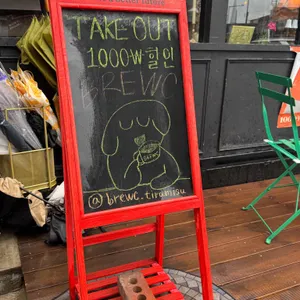 TAKE OUT
1000₩할인
BREWC
@brewc.tiramisu